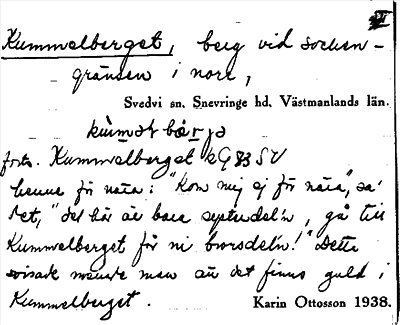 Kummelberget, berg vid socken-
gränsen i norr,
Svedvi sn. Snevringe hd. Västmanlands län.
kùmǝt bær̲ja
forts. Kummelberget kG 83 SV
henne för nära: "Kom mej ej för nära", sa'
det, "det här är bara septendel'n, gå till
Kummelberget får ni brorsdel'n!" Detta
visade menade man att det finns guld i
Kummelberget.
Karin Ottosson 1938.